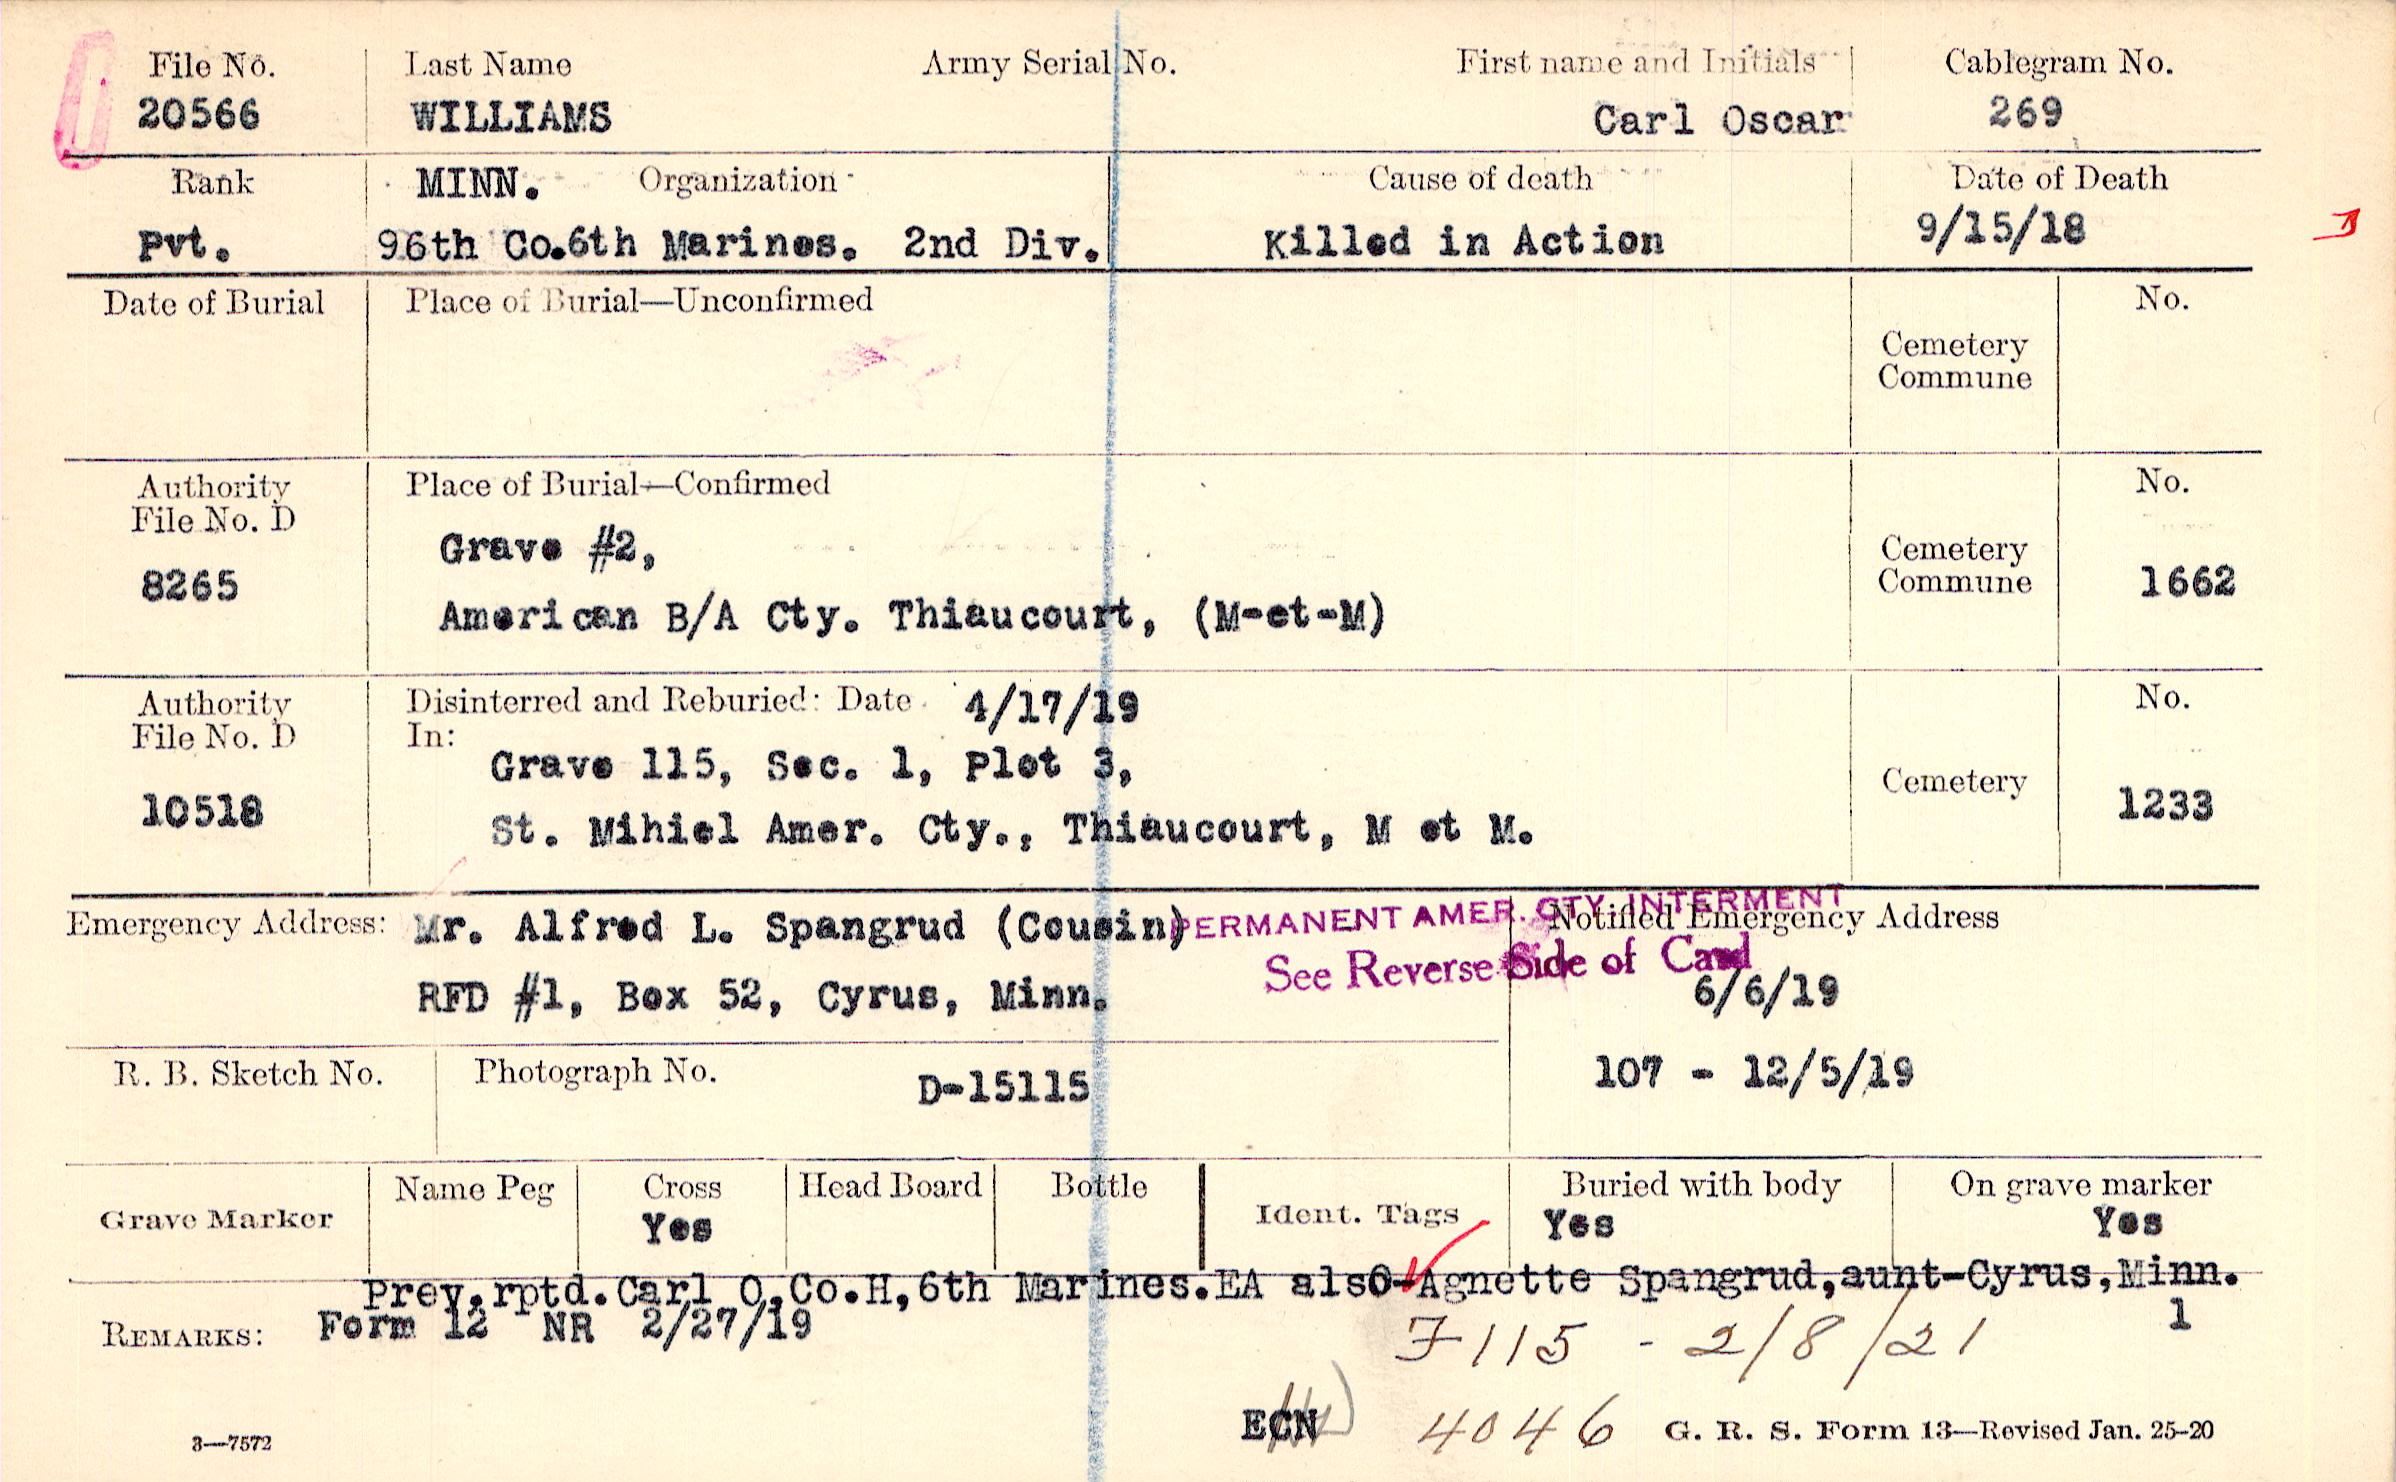 File No. Last Name Army Serial No. First name and Initials Cablegram No.
20566 WILLIAMS Carl Oscar 269
Rank MINN. Organization Cause of death Date of Death
Pvt. 96th Co.6th Marines. 2nd Div. Killed in Action 9/15/18
Date of Burial Place of Burial—Unconfirmed No.
Cemetery
Commune
Authority Place of Burial—Confirmed No.
File No. D
Grave #2,
Cemetery
8265 Commune 1662
American B/A Cty. Thiaucourt, (M-et-M)
Authority Disinterred and Reburied: Date 4/17/19 No.
File No. D In:
Grave 115, Sec. 1, Plot 3,
Cemetery
10518 1233
St. Mihiel Amer. Cty., Thiaucourt, M et M.
PERMANENT AMER. CTY. INTERMENT
Emergency Address: Mr. Alfred L. Spangrud (Cousin) Notified Emergency Address
See Reverse Side of Card
RFD #1, Box 52, Cyrus, Minn. 6/6/19
R. B. Sketch No. Photograph No. D-15115 107 - 12/5/19
Name Peg Cross Head Board Bottle Buried with body On grave marker
Grave Marker Yes Ident. Tags Yes Yes
Prev.rptd.Carl O.Co.H,6th Marines.EA also-Agnette Spangrud,aunt-Cyrus,Minn.
REMARKS: Form 12 NR 2/27/19 1
F115 - 2/8/21
ECN 4046 G. R. S. Form 13—Revised Jan. 25-20
3—7572